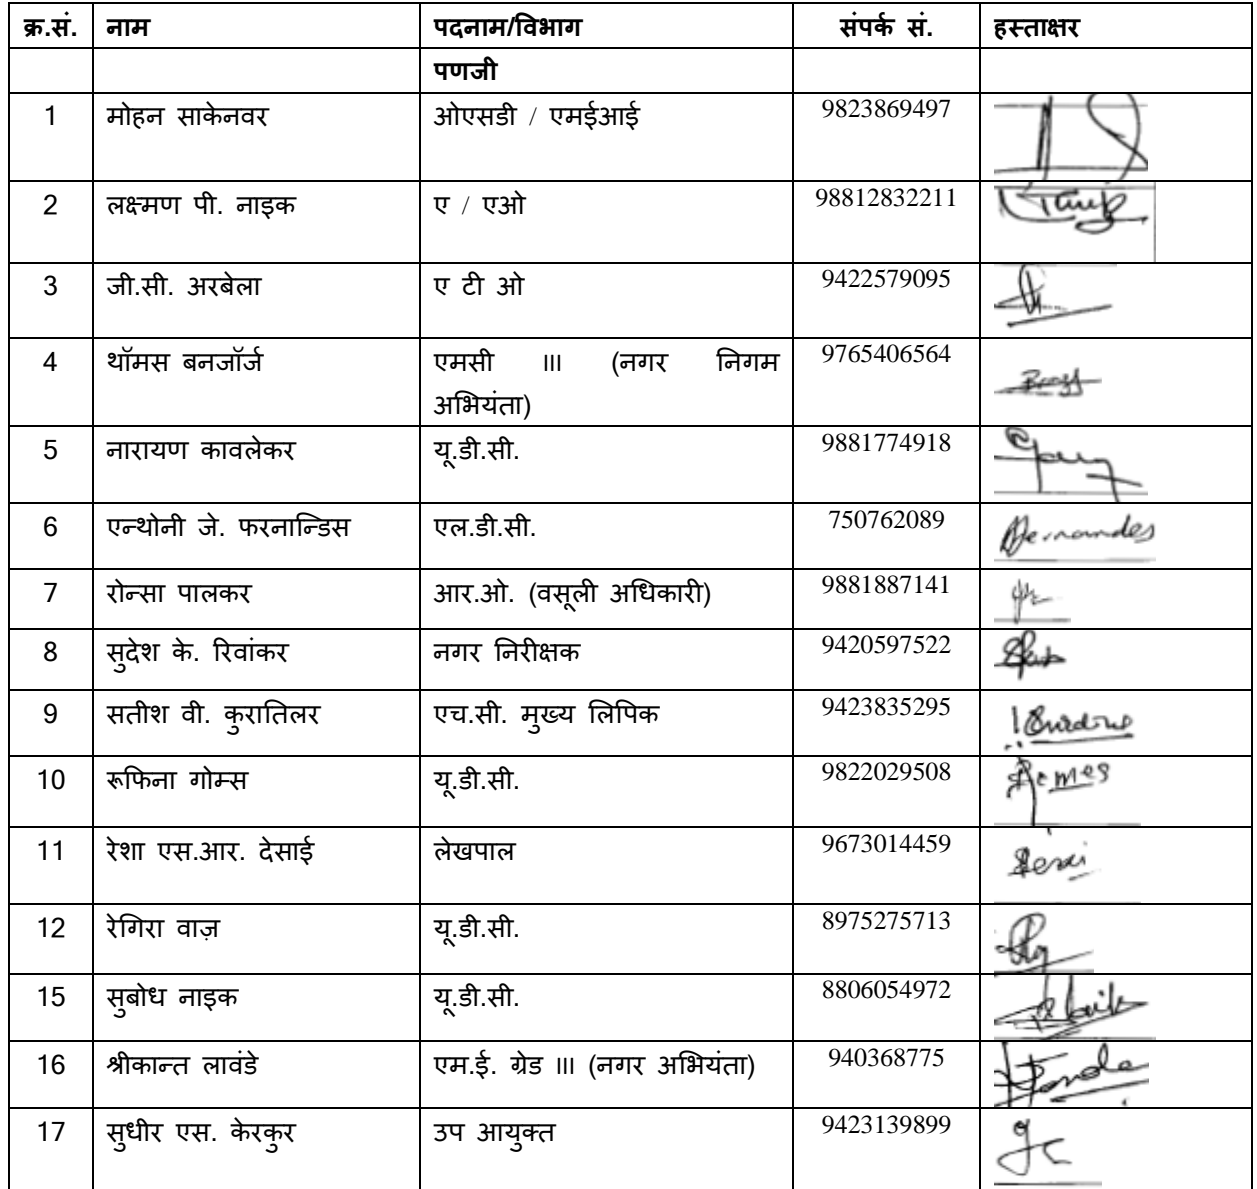 क्र.सं. नाम पदनाम/विभाग संपर्क सं. हस्ताक्षर
पणजी
1 मोहन साकेनवर ओएसडी / एमईआई 9823869497
2 लक्ष्मण पी. नाइक ए / एओ 98812832211
3 जी.सी. अरबेला ए टी ओ 9422579095
4 थॉमस बनजॉर्ज एमसी III (नगर निगम 9765406564
अभियंता)
5 नारायण कावलेकर यू.डी.सी. 9881774918
6 एन्थोनी जे. फरनान्डिस एल.डी.सी. 750762089 Fernandes
7 रोन्सा पालकर आर.ओ. (वसूली अधिकारी) 9881887141
8 सुदेश के. रिवांकर नगर निरीक्षक 9420597522
9 सतीश वी. कुरातिलर एच.सी. मुख्य लिपिक 9423835295
10 रूफिना गोम्स यू.डी.सी. 9822029508
11 रेशा एस.आर. देसाई लेखपाल 9673014459
12 रेगिरा वाज़ यू.डी.सी. 8975275713
15 सुबोध नाइक यू.डी.सी. 8806054972
16 श्रीकान्त लावंडे एम.ई. ग्रेड III (नगर अभियंता) 940368775
17 सुधीर एस. केरकुर उप आयुक्त 9423139899